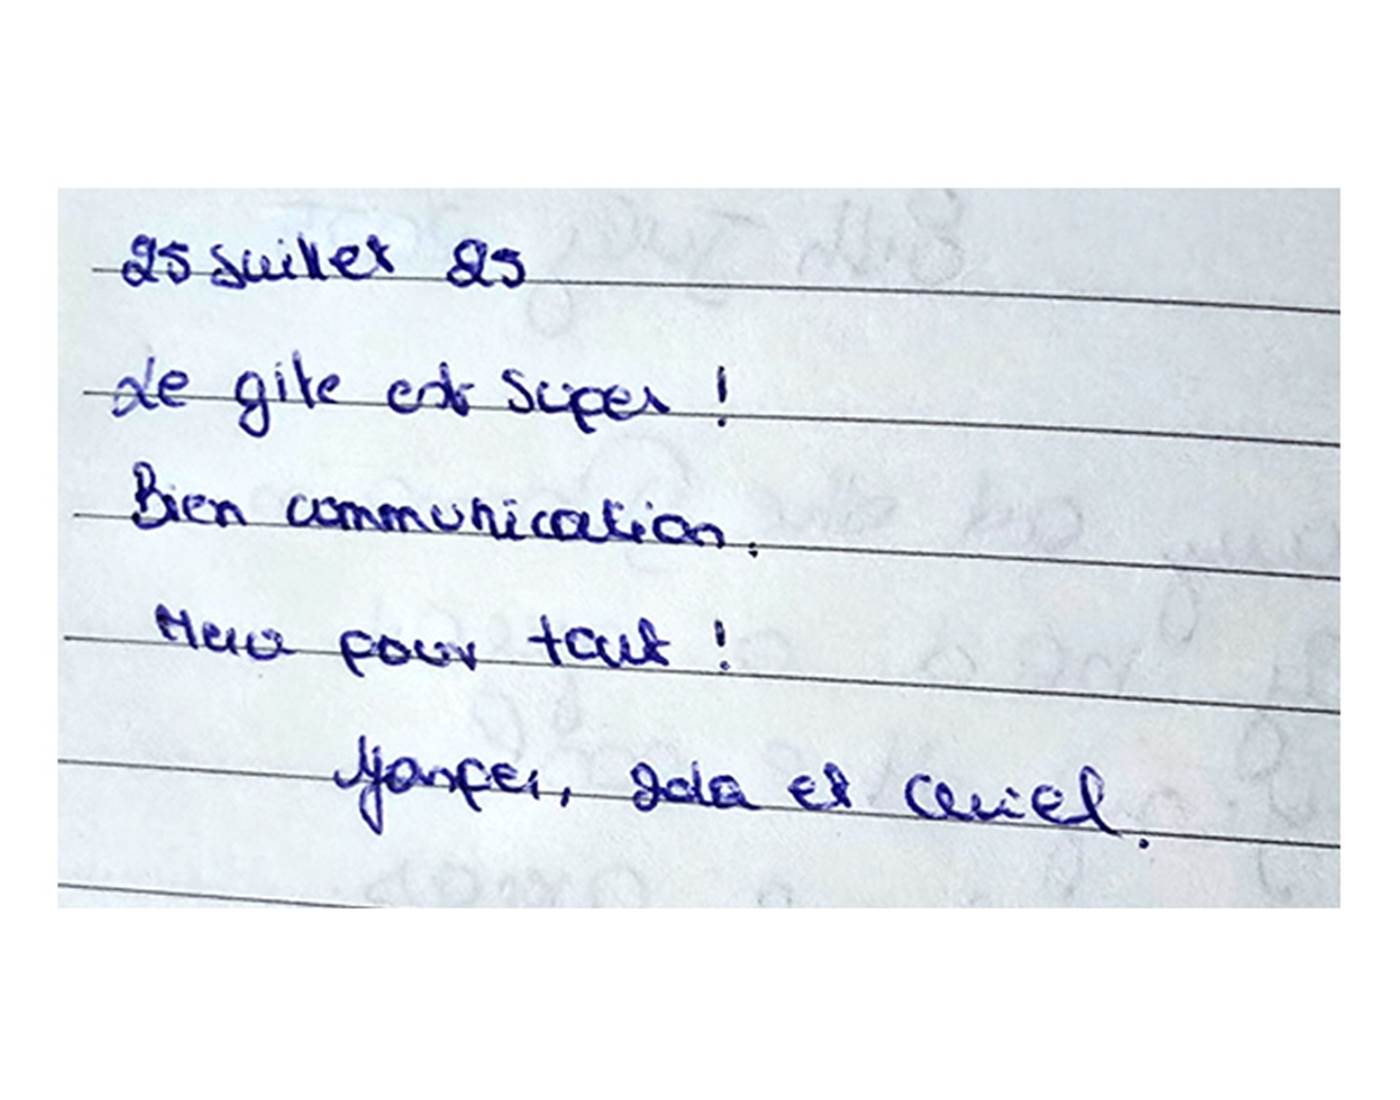 25 Juillet 25
Le gite est super !
Bien communication.
Merci pour tout !
Yanfei, Ida et